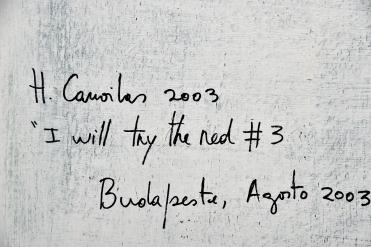 H. Camoilas 2003
"I will try the red #3
Budapeste, Agosto 2003